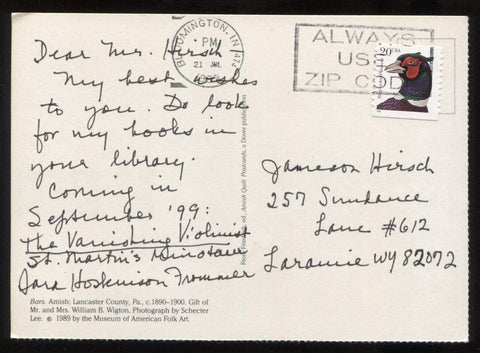 Dear Mr. Hirsch
My best wishes
to you. Do look
for my books in
your library.
Coming in
September '99:
The Vanishing Violinist
St. Martin's Minotaur
Sara Hoskinson Frommer
Bars. Amish; Lancaster County, Pa., c.1890–1900. Gift of
Mr. and Mrs. William B. Wigton. Photograph by Schecter
Lee. © 1989 by the Museum of American Folk Art.
ed. Amish Quilt Postcards, a Dover publication
BLOOMINGTON, IN 474
PM
21 JUL
ALWAYS
USE
ZIP CODE
20 USA
Jameson Hirsch
257 Sundance
Lane #612
Laramie WY 82072